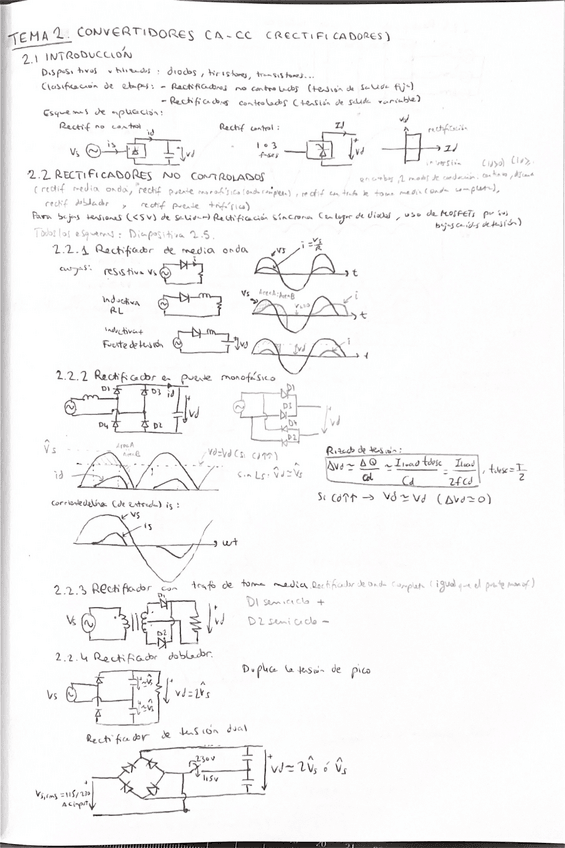 TEMA 2. CONVERTIDORES CA-CC (RECTIFICADORES)
2.1 INTRODUCCIÓN
Dispositivos utilizados: diodos, tiristores, transistores...
Clasificación de etapas: - Rectificadores no controlados (tensión de salida fija)
- Rectificadores controlados (tensión de salida variable)
Esquemas de aplicación:
Rectif no control
Rectif control:
Vs is id Vd
1 o 3 fases
Id Vd
Vd rectificación
Id
2.2 RECTIFICADORES NO CONTROLADOS
(rectif media onda, rectif puente monofásico (onda completa), rectif con trafo de toma media (onda completa),
rectif doblador, rectif puente trifásico)
Para bajas tensiones (<5V de salida) Rectificación síncrona (en lugar de diodos, uso de MOSFETs por sus
bajas caídas de tensión)
Todos los esquemas: Diapositiva 2.5.
2.2.1 Rectificador de media onda
cargas: resistiva Vs
i
Vs i = Vs/R
t
inductiva
RL
Vs i
t
inductiva+
Fuente de tensión
Vd
Vd i
t
2.2.2 Rectificador en puente monofásico
D1 D3 id
Vd
D4 D2
D1
D3
D4
D2
Vd
V̂s
id
Vd=Vd (si Cd↑↑)
sin Ls: V̂d≈V̂s
Rizado de tensión:
ΔVd ≈ ΔQ/Cd ≈ Iload tdesc/Cd = Iload/2fCd, tdesc = T/2
Si Cd↑↑ → Vd ≃ Vd (ΔVd≃0)
corriente de línea (de entrada) is:
Vs
is
wt
2.2.3 Rectificador con trafo de toma media Rectificador de onda completa (igual que el puente monof)
Vs
D1
D2
Vd
D1 semiciclo +
D2 semiciclo -
2.2.4 Rectificador doblador.
Duplica la tensión de pico
Vs
≈V̂s
≈V̂s
Vd=2V̂s
Rectificador de tensión dual
230V
115V
Vs,rms = 115/230
AC input
Vd≃2V̂s ó V̂s